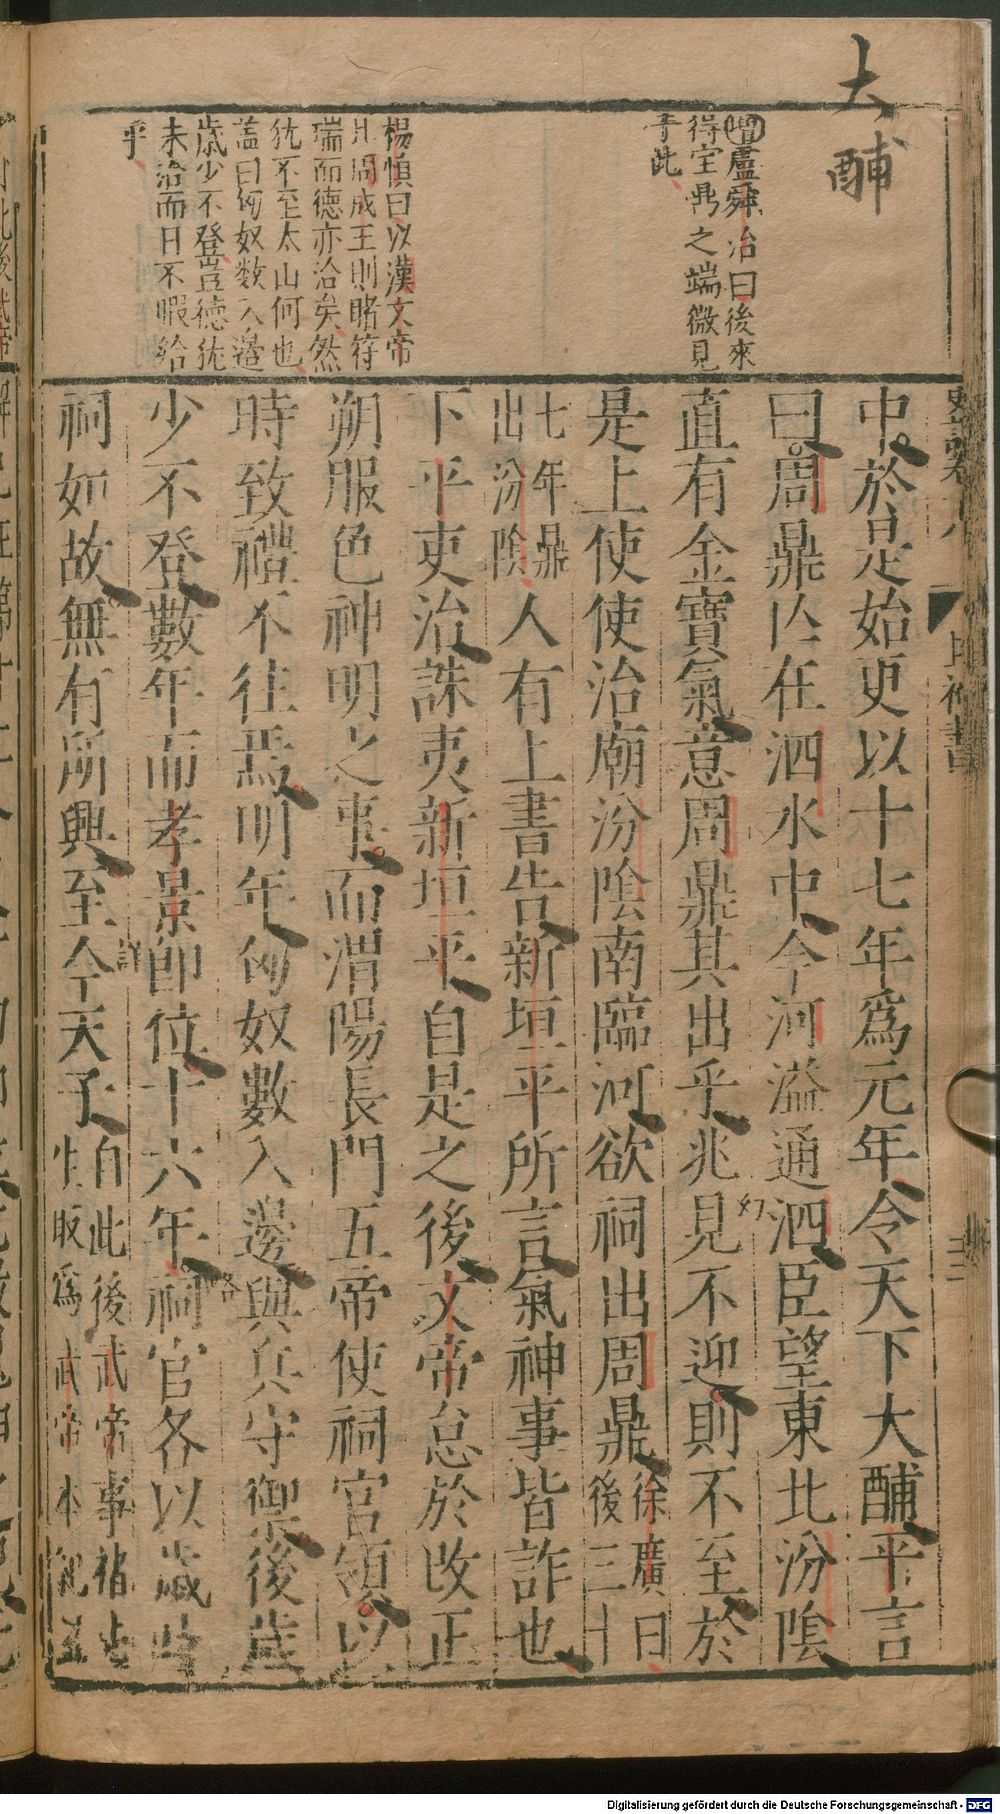 大酺
增盧舜治曰後來
得宝鼎之端微見
于此
楊慎曰以漢文帝
比周成王則睹符
瑞而德亦洽矣然
犹不至太山何也
盖曰匈奴数入邉
歲少不登豈德犹
未洽而日不暇給
乎
中於是始更以十七年爲元年令天下大酺平言
曰周鼎亾在泗水中今河溢通泗臣望東北汾隂
直有金寶氣意周鼎其出乎兆見不迎則不至於
是上使使治廟汾隂南臨河欲祠出周鼎徐廣曰後三十
七年鼎出汾隂人有上書告新垣平所言氣神事皆詐也
下平吏治誅夷新垣平自是之後文帝怠於改正
朔服色神明之事而渭陽長門五帝使祠官領以
時致禮不往焉明年匈奴數入邊興兵守禦後歲
少不登數年而孝景即位十六年祠官各以歲時
祠如故無有所興至今天子自此後武帝事褚先生取爲武帝本紀
Digitalisierung gefördert durch die Deutsche Forschungsgemeinschaft - DFG